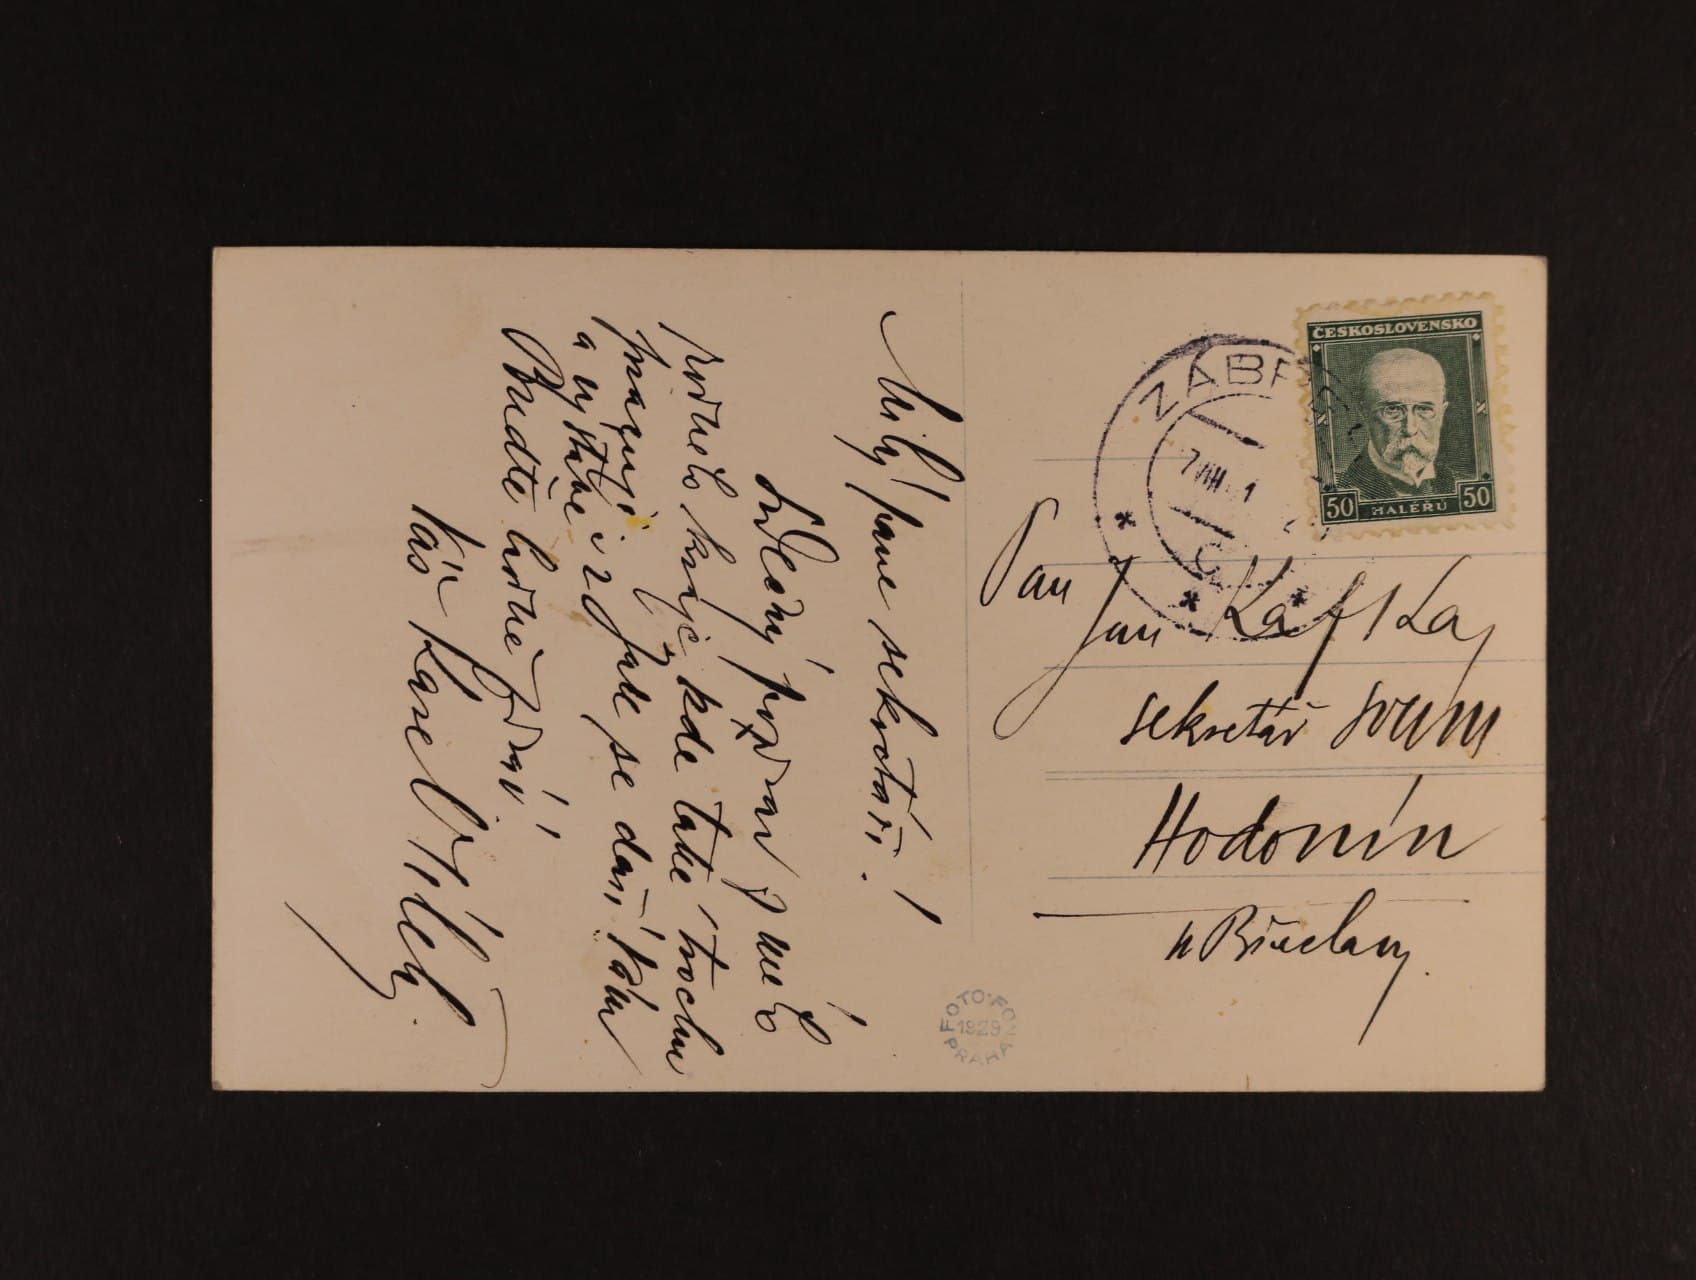 Milý pane sekretáři!
Srdečný pozdrav z mého
rodného kraje, kde také trochu
pracuji
a myslím i zde. Jak se daří Vám
Buďte hodně zdráv!
Váš Karel
ČESKOSLOVENSKO
50 HALÉŘŮ 50
ZÁBŘ
7 VIII 1
Pan
Jan Kafka,
sekretář
Hodonín
u Břeclavy.
FOTO-FO
1929
PRAHA